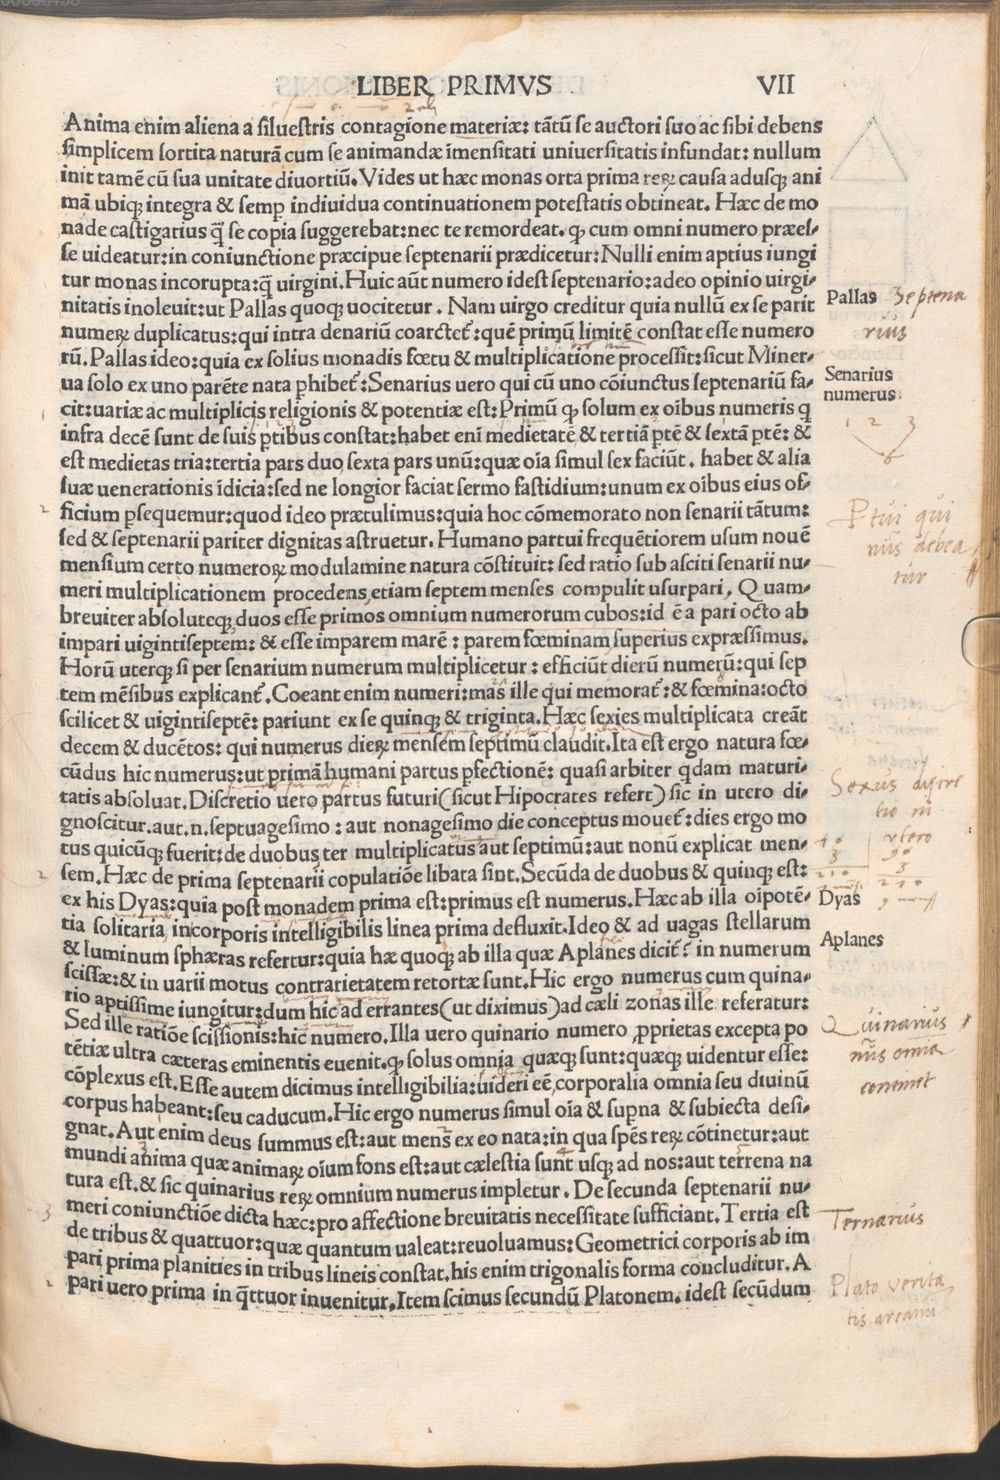 LIBER PRIMVS VII
Anima enim aliena a silueſtris contagione materiæ: tātū ſe auctori ſuo ac ſibi debens
ſimplicem ſortita naturā cum ſe animandæ īmenſitati univerſitatis infundat: nullum
init tamē cū ſua unitate diuortiū. Vides ut hæc monas orta prima reꝝ cauſa aduſqꝫ ani
mā ubiqꝫ integra & ſemꝑ indiuidua continuationem poteſtatis obtineat. Hæc de mo
nade caſtigatius q̄ ſe copia ſuggerebat: nec te remordeat. ꝙ cum omni numero præeſ⸗
ſe uideatur: in coniunctione præcipue ſeptenarii prædicetur: Nulli enim aptius iungi
tur monas incorupta: q̄ uirgini. Huic aūt numero ideſt ſeptenario: adeo opinio uirgi⸗
nitatis inoleuit: ut Pallas quoqꝫ uocitetur. Nam uirgo creditur quia nullū ex ſe parit
Pallas Septena
numeꝝ duplicatus: qui intra denariū coarctet᷑: quē primū limitē conſtat eſſe numero
rius
rū. Pallas ideo: quia ex ſolius monadis fœtu & multiplicatione proceſſit: ſicut Miner⸗
ua ſolo ex uno parēte nata ꝑhibet᷑: Senarius uero qui cū uno cōiunctus ſeptenariū fa⸗
Senarius
numerus:
cit: uariæ ac multiplicis religionis & potentiæ eſt: Primū ꝙ ſolum ex oībus numeris q̄
infra decē ſunt de ſuis ꝑtibus conſtat: habet enī medietatē & tertiā ꝑtē & ſextā ꝑtē: &
1 2 3
eſt medietas tria: tertia pars duo ſexta pars unū: quæ oīa ſimul ſex faciūt. habet & alia
6
ſuæ uenerationis īdicia: ſed ne longior faciat ſermo faſtidium: unum ex oībus eius of⸗
ficium ꝑſequemur: quod ideo prætulimus: quia hoc cōmemorato non ſenarii tātum:
ſed & ſeptenarii pariter dignitas aſtruetur. Humano partui frequētiorem uſum nouē
menſium certo numeroꝝ modulamine natura cōſtituit: ſed ratio ſub aſciti ſenarii nu⸗
meri multiplicationem procedens, etiam ſeptem menſes compulit uſurpari, Quam⸗
breuiter abſoluteqꝫ duos eſſe primos omnium numerorum cubos: id ē a pari octo ab
impari uigintiſeptem: & eſſe imparem marē: parem fœminam ſuperius expræſſimus.
Horū uterqꝫ ſi per ſenarium numerum multiplicetur: efficiūt dierū numerū: qui ſep
tem mēſibus explicant᷑. Coeant enim numeri: mas ille qui memorat᷑: & fœmina: octo
ſcilicet & uigintiſeptē: pariunt ex ſe quinqꝫ & triginta. Hæc ſexies multiplicata creāt
decem & ducētos: qui numerus dieꝝ menſem ſeptimū claudit. Ita eſt ergo natura fœ⸗
cūdus hic numerus: ut primā humani partus ꝑfectionē: quaſi arbiter q̄dam maturi⸗
tatis abſoluat. Diſcretio uero partus futuri (ſicut Hipocrates refert) ſic in utero di⸗
gnoſcitur. aut. n. ſeptuageſimo: aut nonageſimo die conceptus mouet᷑: dies ergo mo
tus quicūqꝫ fuerit: de duobus ter multiplicatus aut ſeptimū: aut nonū explicat men⸗
vtero
ſem. Hæc de prima ſeptenarii copulatiōe libata ſint. Secūda de duobus & quinqꝫ eſt:
ex his Dyas: quia poſt monadem prima eſt: primus eſt numerus. Hæc ab illa oīpotē⸗
Dyas
tia ſolitaria, incorporis intelligibilis linea prima defluxit. Ideo & ad uagas ſtellarum
& luminum ſphæras refertur: quia hæ quoqꝫ ab illa quæ Aplanes dicit᷑: in numerum
Aplanes
ſciſſæ: & in uarii motus contrarietatem retortæ ſunt. Hic ergo numerus cum quina⸗
rio aptiſſime iungitur: dum hic ad errantes (ut diximus) ad cæli zonas ille referatur:
Sed ille ratiōe ſciſſionis: hic numero. Illa uero quinario numero ꝓprietas excepta po
Quinarius
tētiæ ultra cæteras eminentis euenit. ꝙ ſolus omnia quæqꝫ ſunt: quæqꝫ uidentur eſſe:
nūs omnia
cōplexus eſt. Eſſe autem dicimus intelligibilia: uideri eē, corporalia omnia ſeu diuinū
continet
corpus habeant: ſeu caducum. Hic ergo numerus ſimul oīa & ſupna & ſubiecta deſi⸗
gnat. Aut enim deus ſummus eſt: aut mens ex eo nata: in qua ſpēs reꝝ cōtinetur: aut
mundi anima quæ animaꝝ oīum fons eſt: aut cæleſtia ſunt uſqꝫ ad nos: aut terrena na
tura eſt. & ſic quinarius reꝝ omnium numerus impletur. De ſecunda ſeptenarii nu⸗
meri coniunctiōe dicta hæc: pro affectione breuitatis neceſſitate ſufficiant. Tertia eſt
Ternarius
de tribus & quattuor: quæ quantum ualeat: reuoluamus: Geometrici corporis ab im
pari prima planities in tribus lineis conſtat, his enim trigonalis forma cōcluditur. A
pari uero prima in q̄ttuor inuenitur. Item ſcimus ſecundū Platonem. ideſt ſecūdum
Plato verita
tis arcani